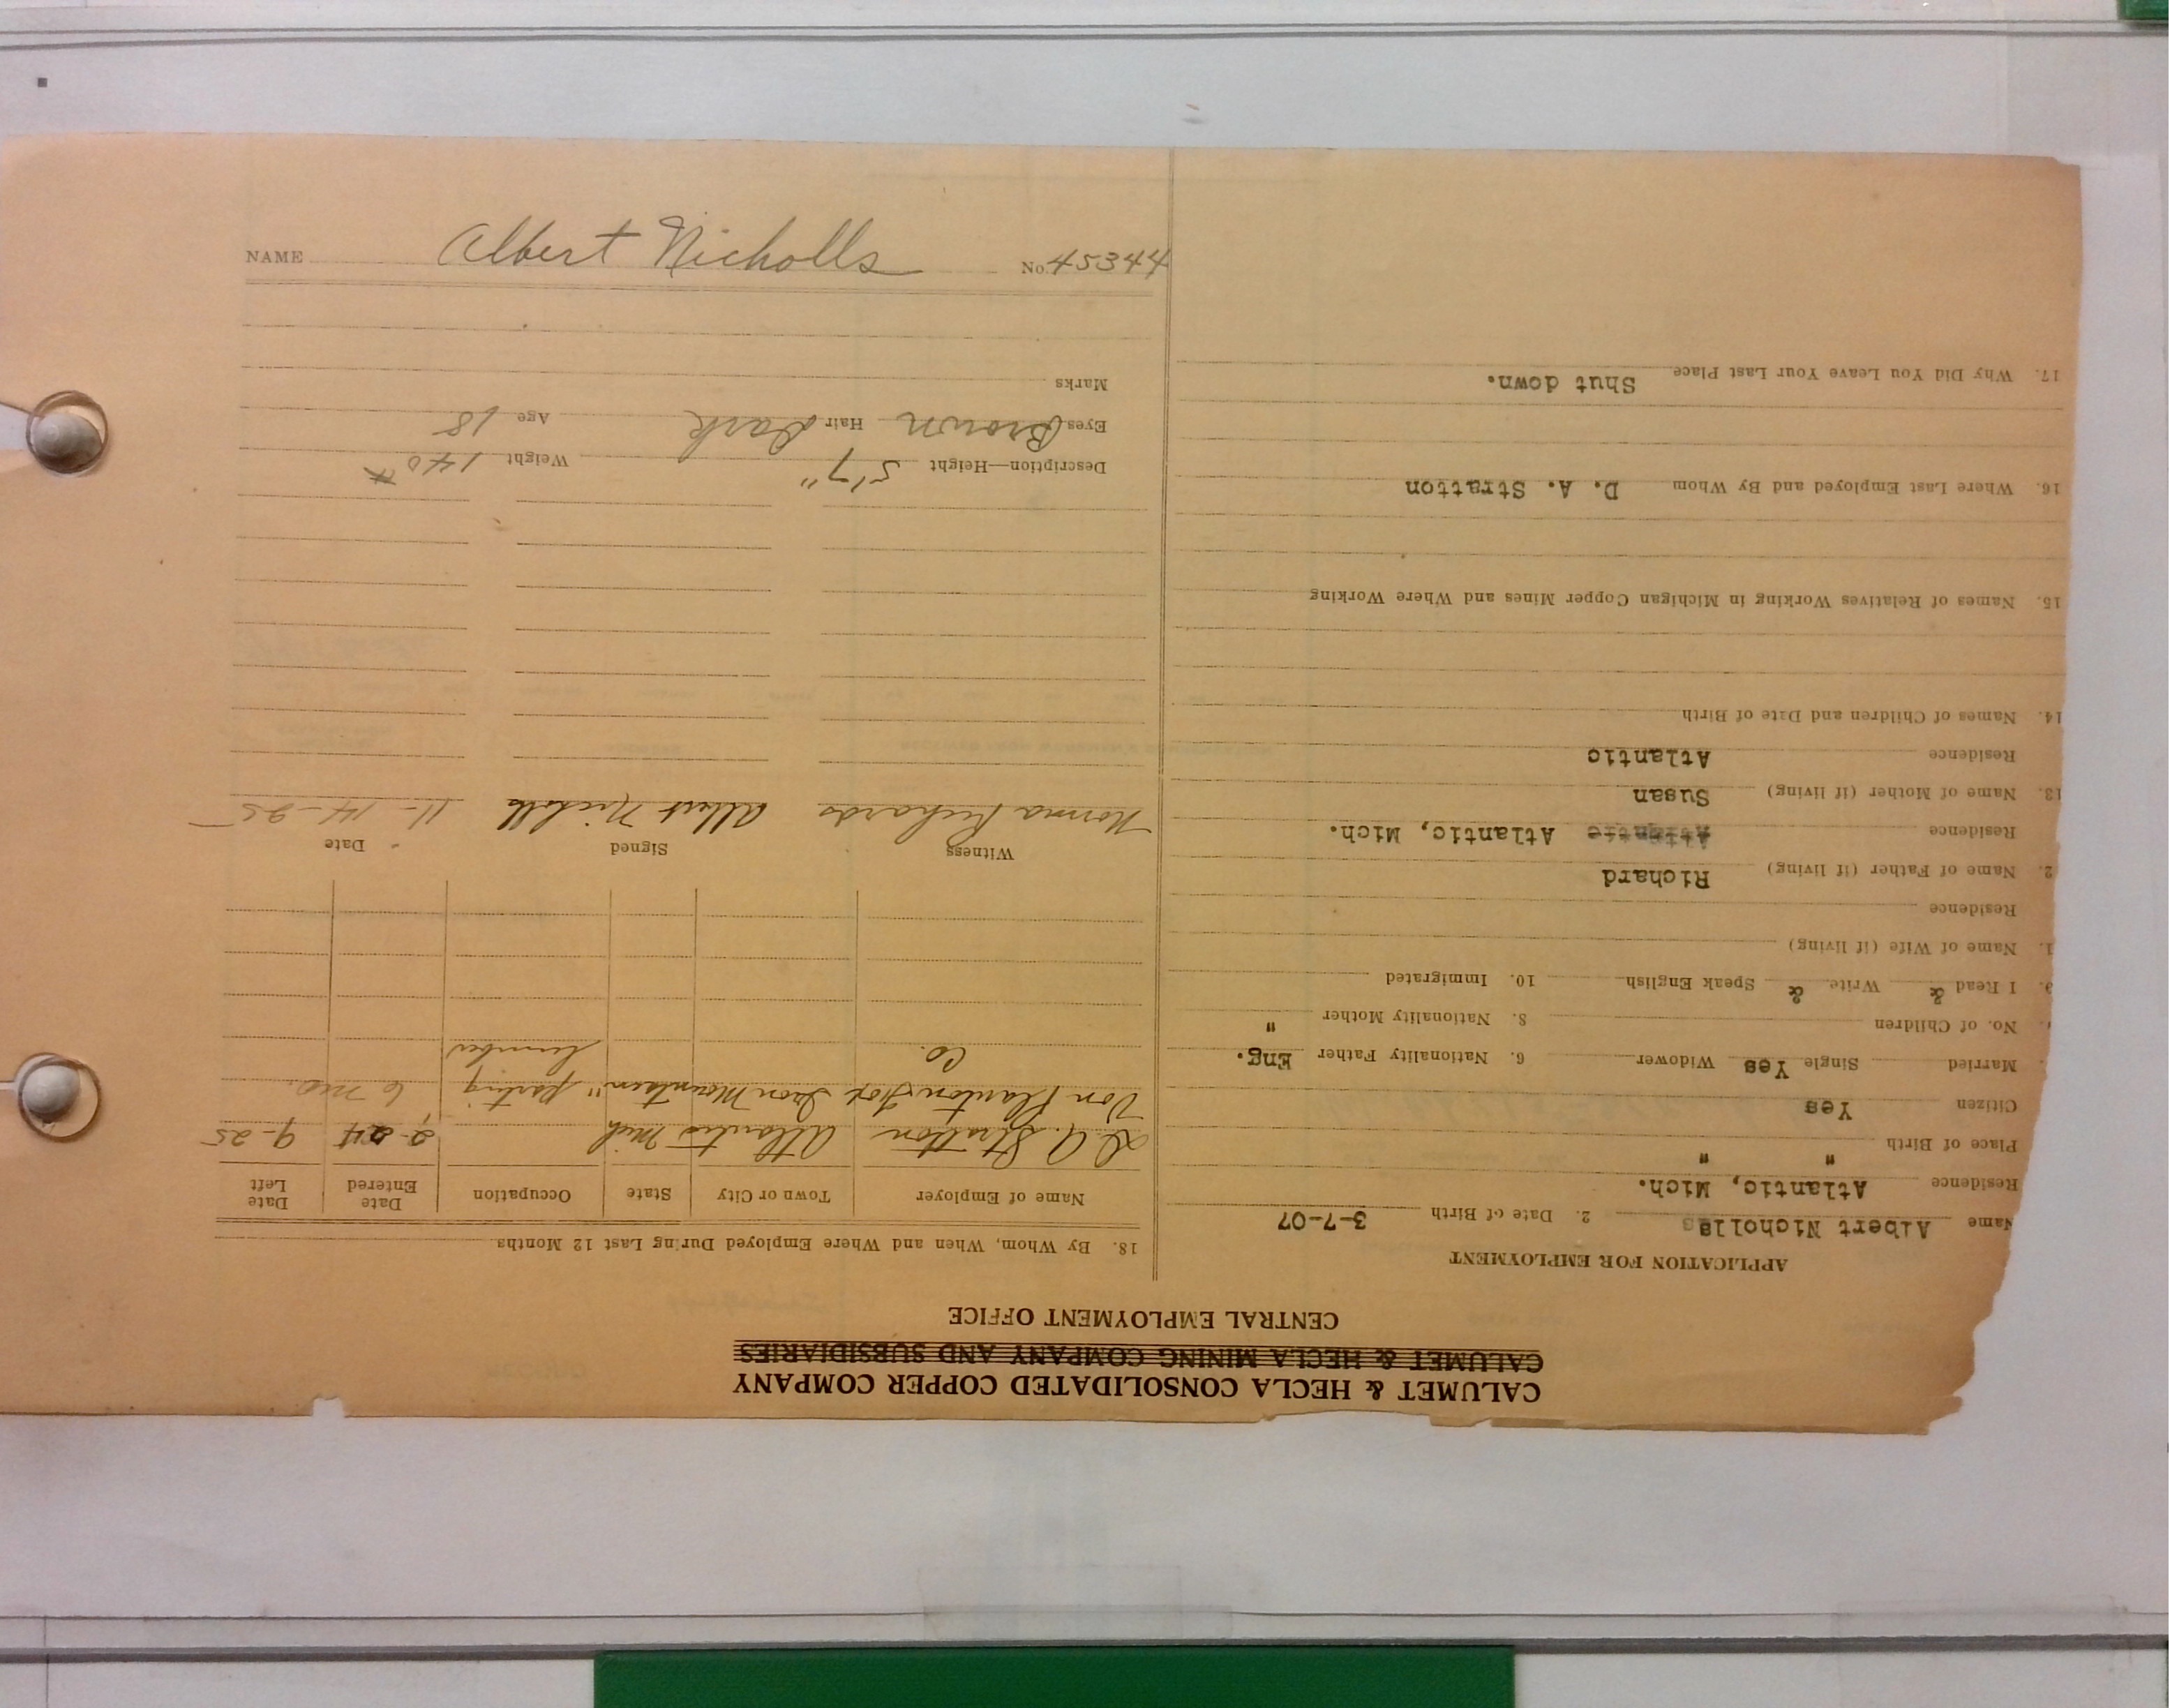 NAME Albert Nicholls No. 45344
CALUMET & HECLA CONSOLIDATED COPPER COMPANY
CALUMET & HECLA MINING COMPANY AND SUBSIDIARIES
CENTRAL EMPLOYMENT OFFICE
APPLICATION FOR EMPLOYMENT
Name Albert Nicholls 2. Date of Birth 3-7-07
Residence Atlantic, Mich.
Place of Birth " "
Citizen Yes
Married Single Yes Widower 6. Nationality Father Eng.
No. of Children 8. Nationality Mother "
I Read & Write & Speak English 10. Immigrated
1. Name of Wife (if living)
Residence
2. Name of Father (if living) Richard
Residence Atlantic Atlantic, Mich.
13. Name of Mother (if living) Susan
Residence Atlantic
14. Names of Children and Date of Birth
15. Names of Relatives Working in Michigan Copper Mines and Where Working
16. Where Last Employed and By Whom D. A. Stratton
17. Why Did You Leave Your Last Place Shut down.
18. By Whom, When and Where Employed During Last 12 Months
Name of Employer Town or City State Occupation Date Entered Date Left
D. A. Stratton Atlantic Mich 2-24 9-25
Von Iron Mountain " parting 6 mo.
Co. lumber
Witness Signed Date
Norma Richards Albert Nicholls 11-14-25
Description—Height 5'7" Weight 140 #
Eyes Brown Hair Dark Age 18
Marks